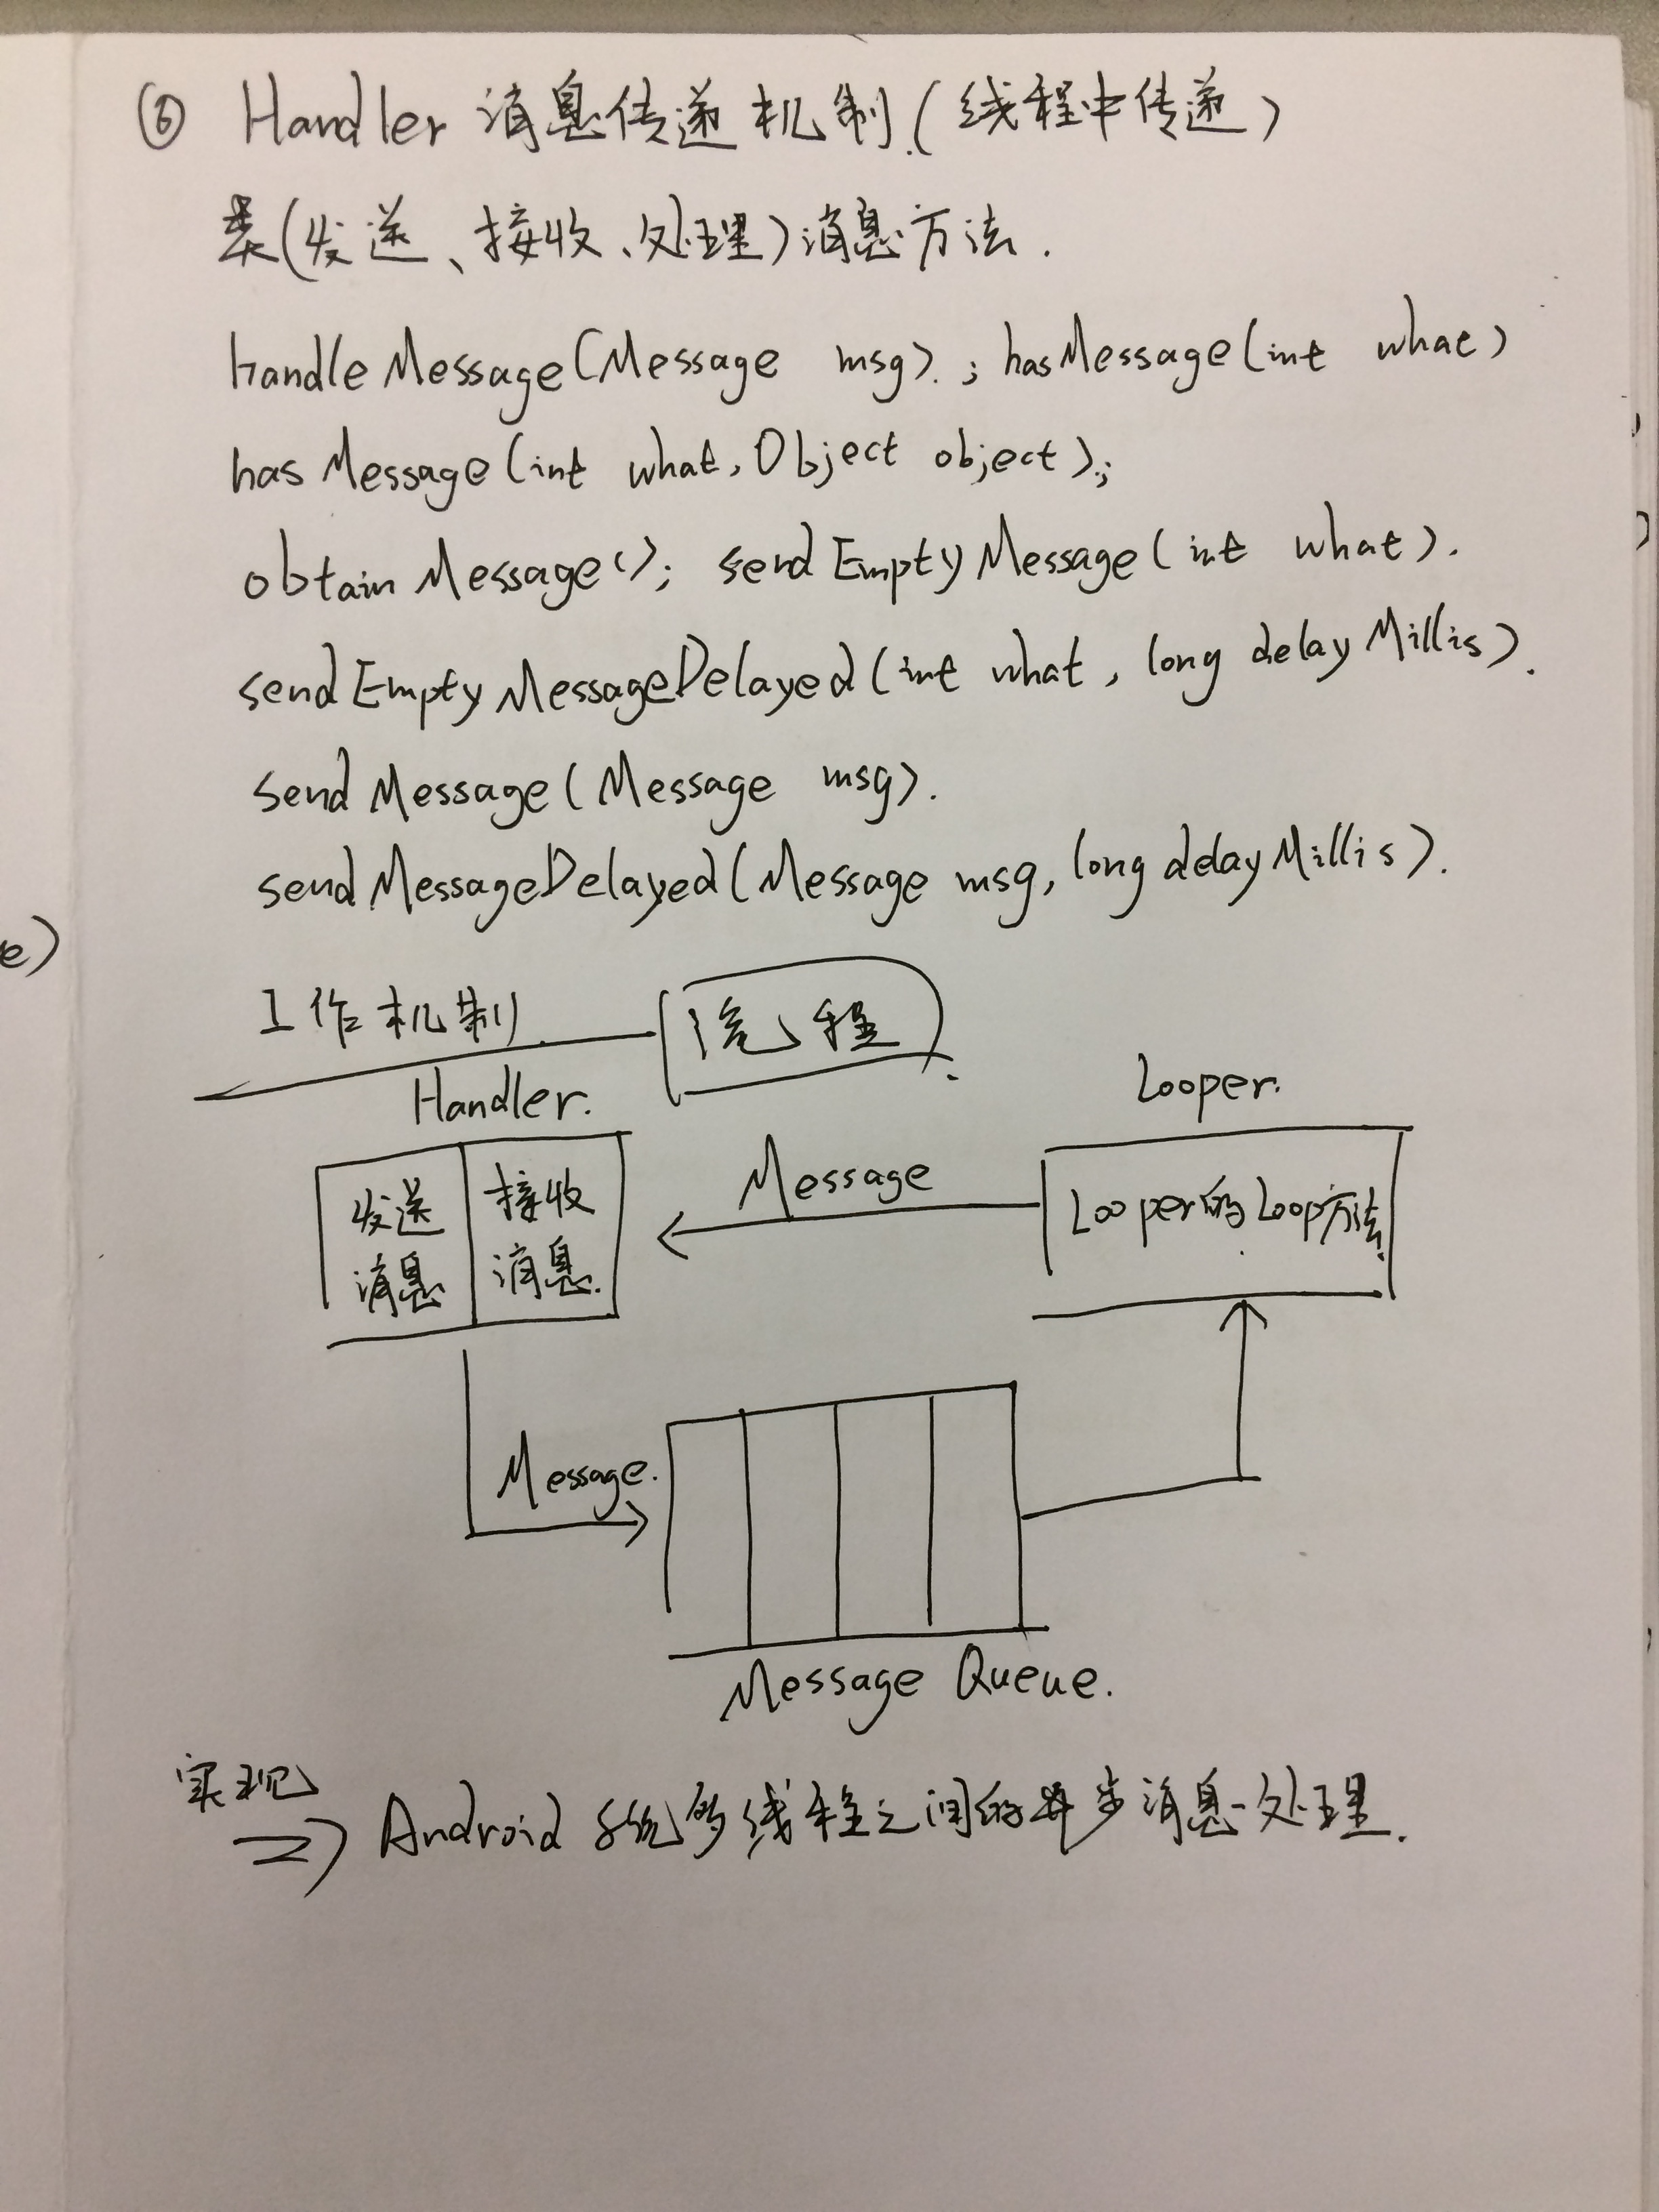 ⑥ Handler 消息传递机制.(线程中传递)
类(发送、接收、处理)消息方法.
handleMessage(Message msg).; hasMessage(int what)
hasMessage(int what, Object object);
obtainMessage(); sendEmptyMessage(int what).
sendEmptyMessageDelayed(int what, long delayMillis).
sendMessage(Message msg).
sendMessageDelayed(Message msg, long delayMillis).
e)
工作机制. 流程
Handler.
Looper.
发送消息
接收消息.
Message
Looper的Loop方法.
Message.
Message Queue.
实现
=> Android 系统多线程之间的异步消息处理.